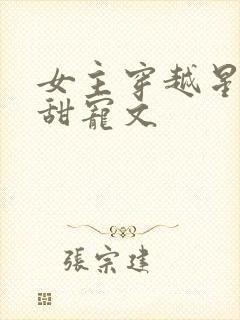 女主穿越星
甜寵文
張宗建